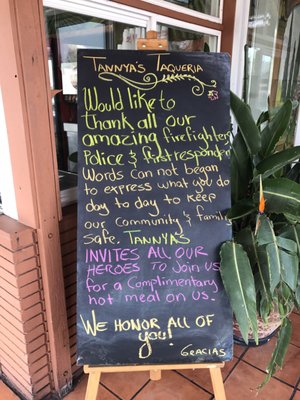 Tannya's Taqueria
Would like to
thank all our
amazing firefighters
Police & first responders
Words can not began
to express what you do
day to day to keep
our community & family
safe. Tannya's
invites all our
heroes to join us
for a complimentary
hot meal on us.
We honor all of
you!
Gracias